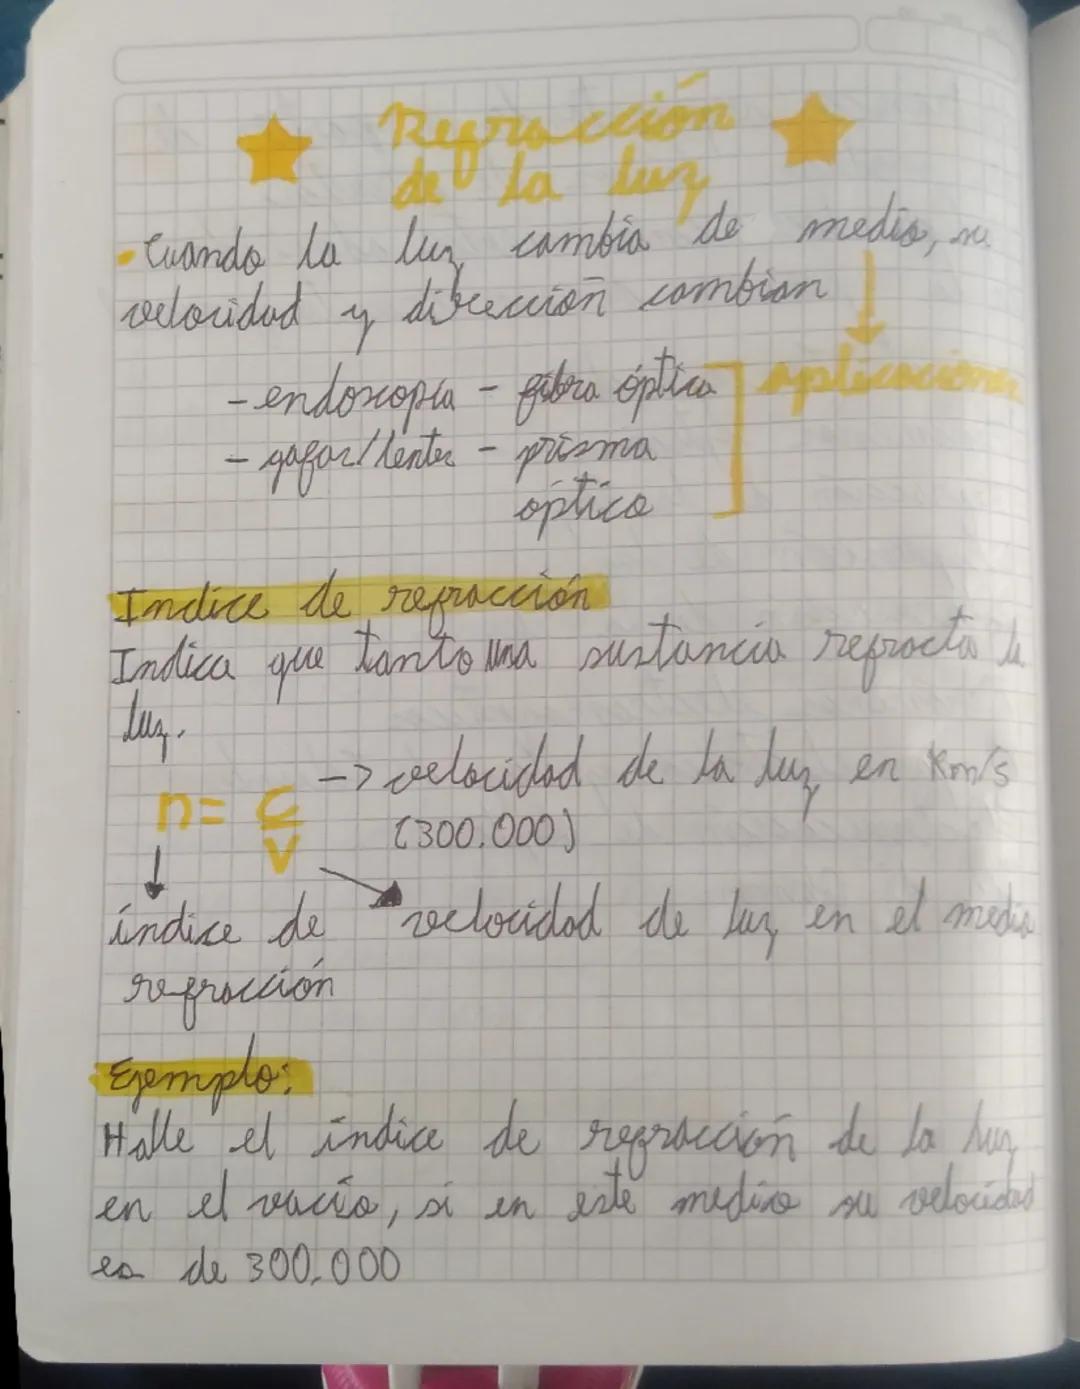 Refracción
de la luz
• Cuando la luz cambia de medio, su
velocidad y dirección cambian
- endoscopía - fibra óptica
aplicaciones
- gafas/lentes - prisma
óptico
Indice de refracción
Indica que tanto una sustancia refracta la
luz.
n= c/v
-> velocidad de la luz en Km/s
(300.000)
índice de
refracción
velocidad de luz en el medio
Ejemplo:
Halle el índice de refracción de la luz
en el vacío, si en este medio su velocidad
es de 300.000